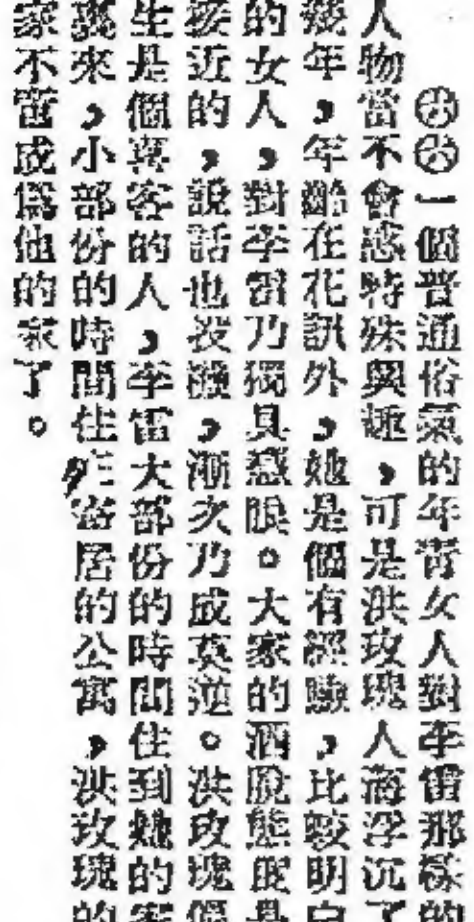 一個普通俗氣的年青女人對李雷那樣的
人物當不會感特殊興趣，可是洪玫瑰人海浮沉了
幾年，年齡在花訊外，她是個有經驗，比較明白
的女人，對李雷乃獨具慧眼。大家的洒脫態度是
接近的，說話也投機，漸次乃成莫逆。洪玫瑰個
生是個客的人，李雷大部份的時間住到她的
來，小部份的時間住在寄居的公寓，洪玫瑰的
家不啻成爲他的家了。